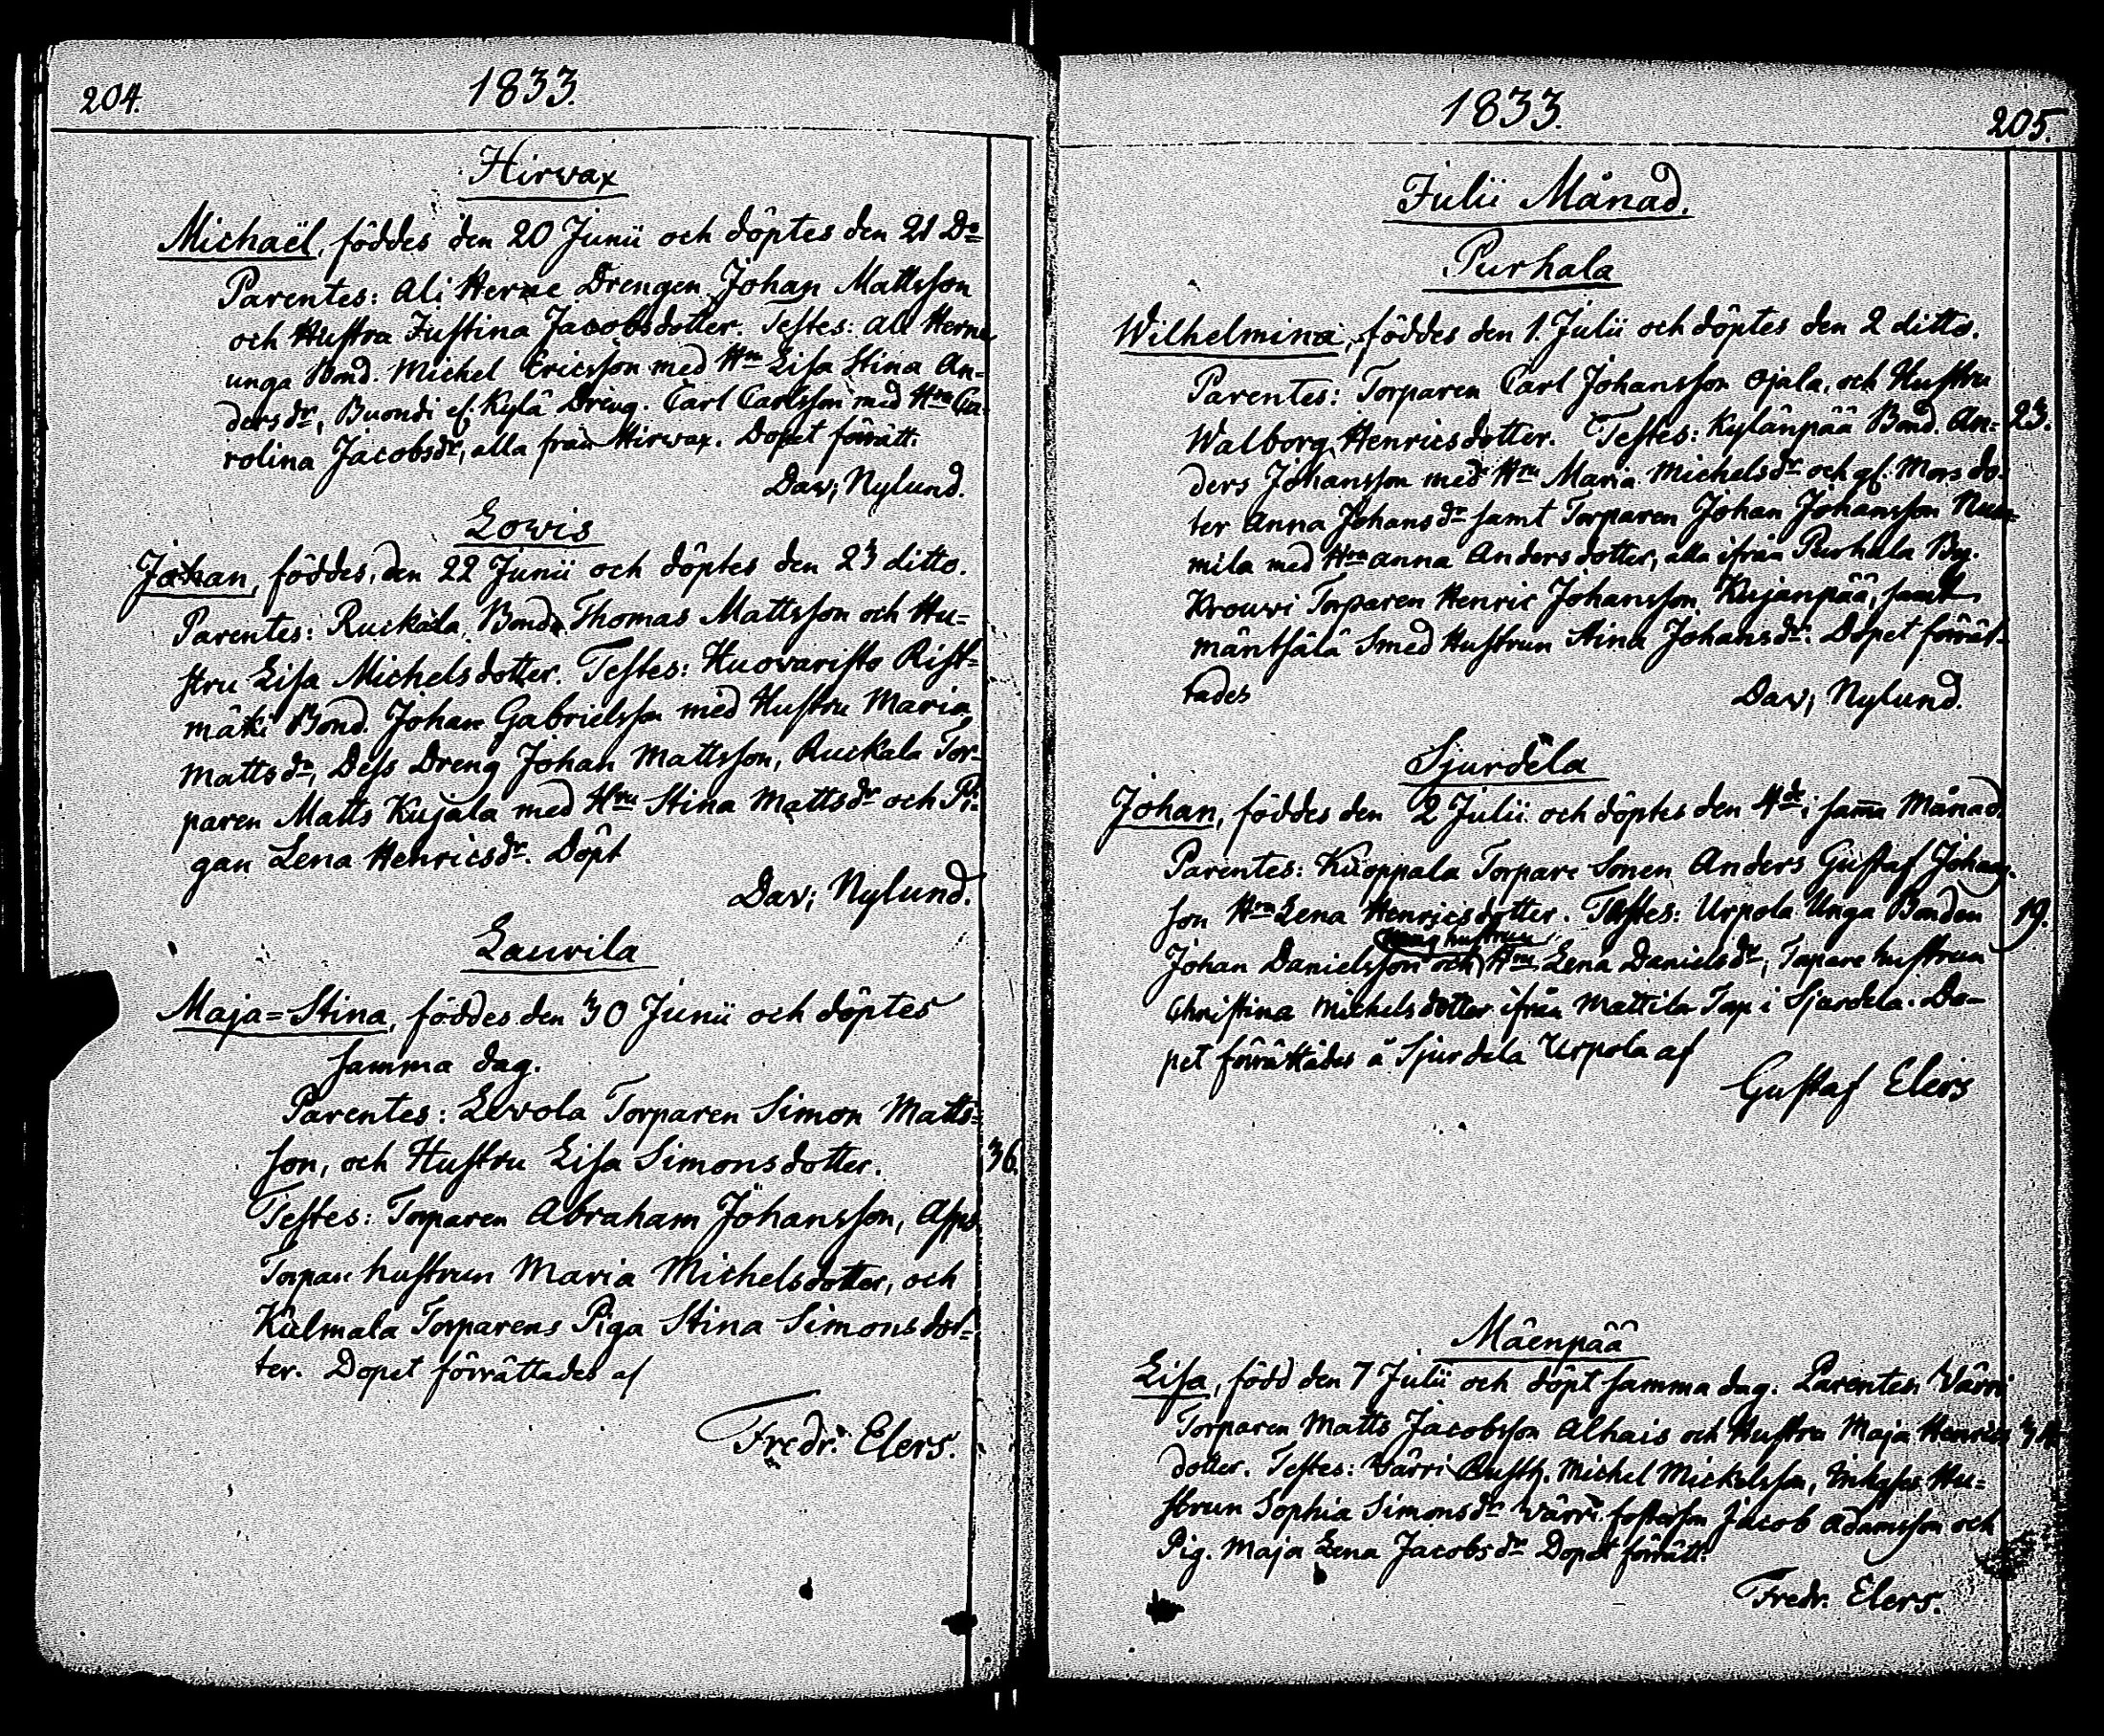 204.
1833.
Hirwax
Michaël, föddes den 20 Junii och döptes den 21 Do
Parentes: Ali Herne Drengen Johan Mattsson
och Hustru Justina Jacobsdotter. Testes: Ali Herne
unga Bond. Michel Ericsson med Hru Lisa Stina An-
ders dr, Buondi ell. Kylä Dreng. Carl Carlsson med Hru Ca-
rolina Jacobsdr, alla från Hirwax. Dopet förrätt.
Dav; Nylund.
Lowis
Johan, föddes den 22 Junii och döptes den 23 ditto.
Parentes: Ruckala Bond. Thomas Mattsson och Hu-
stru Lisa Michelsdotter. Testes: Huovaristo Rist-
mäki Bond. Johan Gabrielsson med Hustru Maria
Matts dr, Dess Dreng Johan Mattsson, Ruckala Tor-
paren Matts Kujala med Hru Stina Mattsdr och Pi-
gan Lena Henricsdr. Döpt
Dav; Nylund.
Lauvila
Maja=Stina, föddes den 30 Junii och döptes
samma dag.
Parentes: Levola Torparen Simon Matts-
son, och Hustru Lisa Simonsdotter.
36.
Testes: Torparen Abraham Johansson,
Torpare hustrun Maria Michelsdotter, och
Kulmala Torparens Piga Stina Simonsdot-
ter. Dopet förrättades af
Fredr. Elers.
1833.
205.
Julii Månad.
Purhala
Wilhelmina, föddes den 1. Julii och döptes den 2 ditto.
Parentes: Torparen Carl Johansson Ojala, och Hustru
Walborg Henricsdotter. Testes: Kylänpää Bond. An-
23.
ders Johansson med Hru Maria Michelsdr och Mors do-
ter Anna Johansdr samt Torparen Johan Johansson
mila med Hru Anna Andersdotter, alla ifrån Purhala By.
Krouvi Torparen Henric Johansson Kujanpää, samt
mäntsälä Smed Hustrun Stina Johansdr. Dopet förrät-
tades
Dav; Nylund.
Sjurdela
Johan, föddes den 2 Julii och döptes den 4de i samma Månad.
Parentes: Kuoppala Torpare Sonen Anders Gustaf Johans-
son Hru Lena Henricsdotter. Testes: Urpola Unga Bonden
19.
hustrun
Johan Danielsson och Hru Lena Danielsdr, Torpare hustrun
Christina Michelsdotter ifrån Mattila Torp i Sjurdela. Do-
pet förrättades å Sjurdela Urpola af
Gustaf Elers
Mäenpää
Lisa, född den 7 Julii och döpt samma dag. Parentes: Wärri
Torparen Matts Jacobsson Alhais och Hustru Maja Henrics
dotter. Testes: Wärri Rusth. Michel Mickelsson, Hu-
strun Sophia Simonsdr Wärri fosterson Jacob Adamsson och
Pig. Maja Lena Jacobsdr Dopet förrätt.
Fredr. Elers.